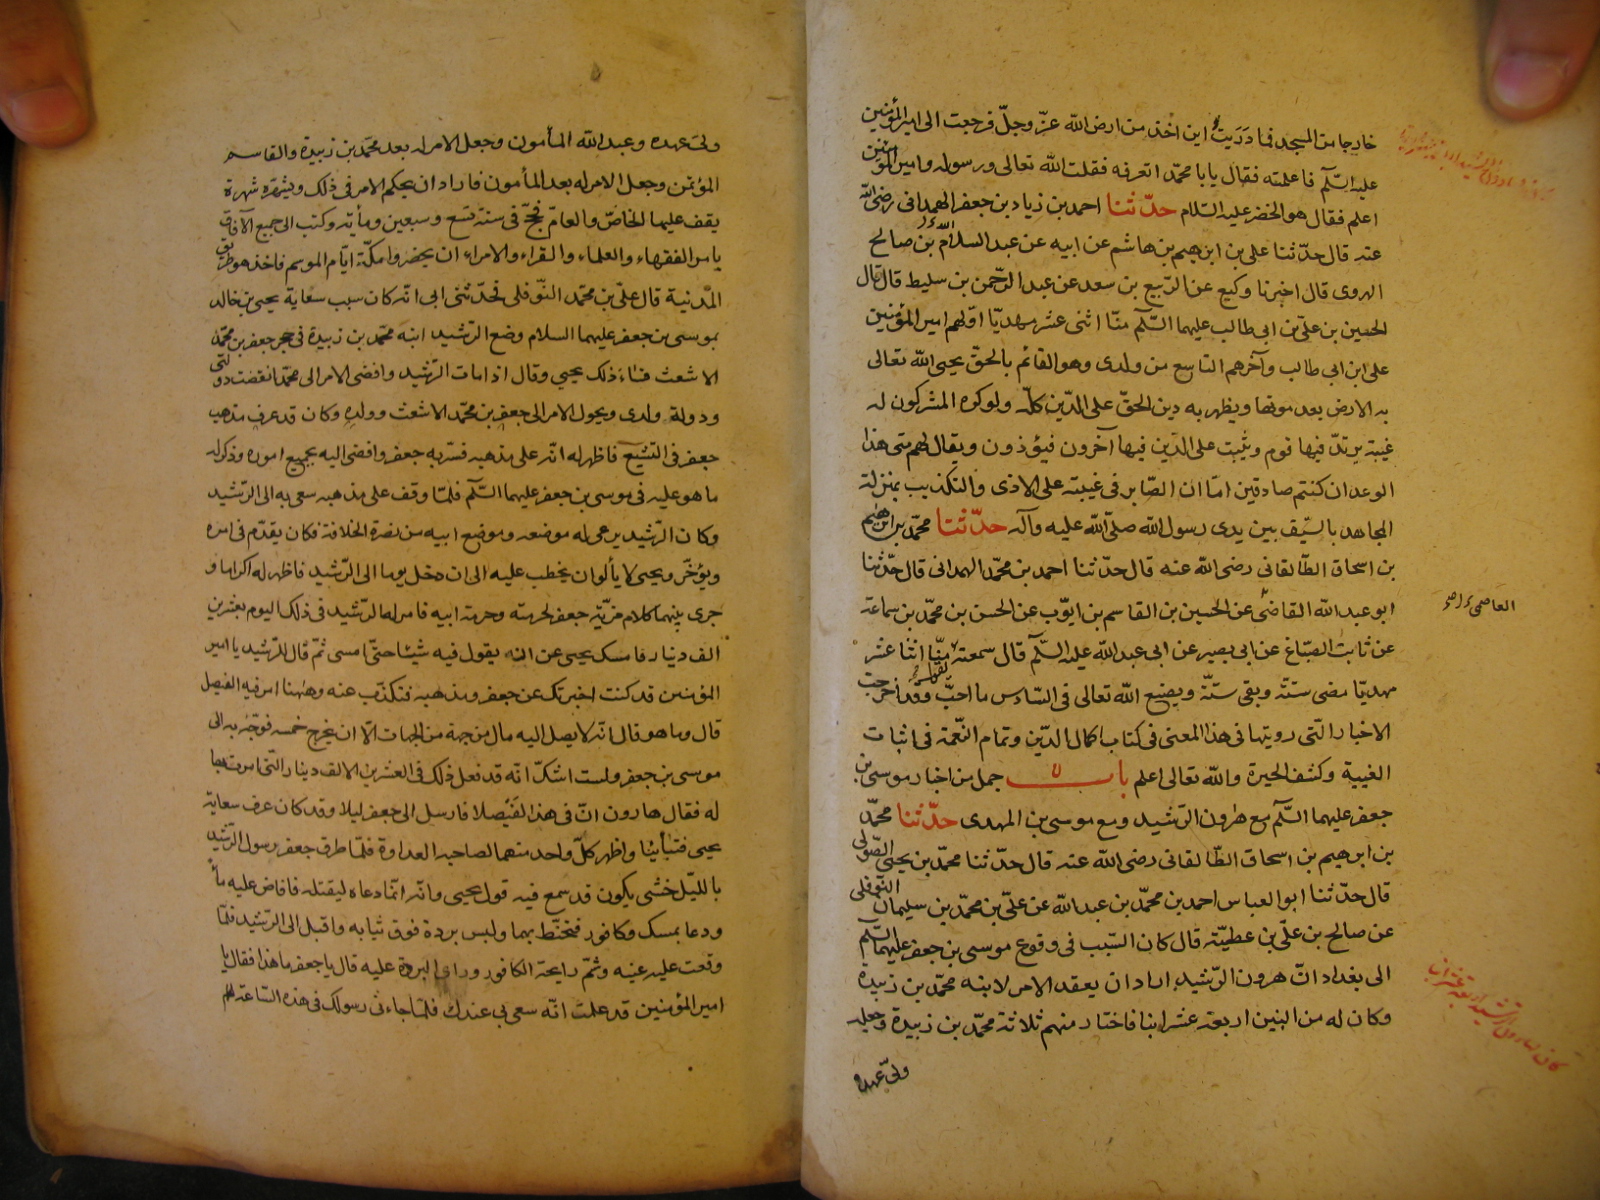 خارجا من المسجد فما دريت اين اخذ من ارض الله عزّ وجلّ فرجعت الى امير المؤمنين
عليه السّلم فاعلمته فقال يابا محمّد اتعرفه فقلت الله تعالى ورسوله وامير المؤمنين
اعلم فقال هو الخضر عليه السّلام حدّثنا احمد بن زياد بن جعفر الهمدانى رضى الله
عنه قال حدّثنا على بن ابرهيم بن هاشم عن ابيه عن عبد السلام بن صالح
الهروى قال اخبرنا وكيع عن الرّبيع بن سعد عن عبد الرّحمن بن سليط قال قال
الحسين بن على بن ابى طالب عليهما السّلم منّا اثنى عشر مهديّا اوّلهم امير المؤمنين
على ابن ابى طالب وآخرهم التاسع من ولدى وهو القائم بالحقّ يحيى الله تعالى
به الارض بعد موتها ويظهر به دين الحقّ على الدّين كلّه ولو كره المشركون له
غيبة يرتدّ فيها قوم ويثبت على الدّين فيها آخرون فيؤذون ويقال لهم متى هذا
الوعد ان كنتم صادقين امّا ان الصّابر فى غيبته على الاذى والتكذيب بمنزلة
المجاهد بالسّيف بين يدى رسول الله صلّى الله عليه وآله حدّثنا محمّد بن ابرهيم
بن اسحاق الطّالقانى رضى الله عنه قال حدّثنا احمد بن محمّد الهمدانى قال حدّثنا
ابو عبد الله القاضى عن الحسين بن القاسم بن ايوّب عن الحسن بن محمّد بن سماعة
العاصمى
عن ثابت الصّبّاغ عن ابى بصير عن ابى عبد الله عليه السّلم قال سمعته منّا اثنا عشر
مهديّا مضى ستّة وبقى ستّة ويصنع الله تعالى فى السّادس ما احبّ وقد اخرجت
الاخبار الّتى رويتها فى هذا المعنى فى كتاب اكمال الدّين وتمام النّعمة فى اثبات
الغيبة وكشف الحيرة والله تعالى اعلم باب جمل من اخبار موسى بن
جعفر عليهما السّلم مع هٰرون الرّشيد ومع موسى بن المهدى حدّثنا محمّد
بن ابرهيم بن اسحاق الطّالقانى رضى الله عنه قال حدّثنا محمّد بن يحيى الصّولى
قال حدّثنا ابو العباس احمد بن محمّد بن عبد الله عن علىّ بن محمّد بن سليمان النّوفلى
عن صالح بن علىّ بن عطيّة قال كان السّبب فى وقوع موسى بن جعفر عليهما السّلم
الى بغداد انّ هرون الرّشيد اراد ان يعقد الامر لابنه محمّد بن زبيدة
وكان له من البنين اربعة عشر ابنا فاختار منهم ثلاثة محمّد بن زبيدة وجعله
ولىّ عهده
ولىّ عهده وعبد الله المأمون وجعل الامر له بعد محمّد بن زبيدة والقاسم
المؤتمن وجعل الامر له بعد المأمون فاراد ان يحكم الامر فى ذلك ويشهره شهرة
يقف عليها الخاصّ والعامّ فحجّ فى سنة تسع وسبعين ومأية وكتب الى جميع الآفاق
يامر الفقهاء والعلماء والقراء والامراء ان يحضروا مكّة ايّام الموسم فاخذ هو طريق
المدينة قال علىّ بن محمّد النّوفلى فحدّثنى ابى انّه كان سبب سعاية يحيى بن خالد
بموسى بن جعفر عليهما السلام وضع الرّشيد ابنه محمّد بن زبيدة فى حجر جعفر بن محمّد
الاشعث فساء ذلك يحيى وقال اذا مات الرّشيد وافضى الامر الى محمّد انقضت دولتى
ودولة ولدى ويحول الامر الى جعفر بن محمّد الاشعث وولده وكان قد عرف مذهب
جعفر فى التشيّع فاظهر له انّه على مذهبه فسّر به جعفر وافضى اليه بجميع اموره وذكر له
ما هو عليه فى موسى بن جعفر عليهما السّلم فلمّا وقف على مذهبه سعى به الى الرّشيد
وكان الرّشيد يرعى له موضعه وموضع ابيه من نصرة الخلافة فكان يقدّم فى امره
ويؤخّر ويحيى لا يألو ان يخطب عليه الى ان دخل يوما الى الرّشيد فاظهر له اكراما و
جرى بينهما كلام مزيّة جعفر لحرمته وحرمة ابيه فامر له الرّشيد فى ذلك اليوم بعشرين
الف دينار فامسك يحيى عن انه يقول فيه شيئا حتّى امسى ثمّ قال للرّشيد يا امير
المؤمنين قد كنت اخبرتك عن جعفر ومذهبه فتكذّب عنه وهٰهنا امر فيه الفيصل
قال وما هو قال انّه لا يصل اليه مال من جهة من الجهات الّا ان يخرج خمسه فوجّه به الى
موسى بن جعفر ولست اشكّ انّه قد فعل ذلك فى العشرين الالف دينار الّتى امرت بها
له فقال هارون انّ فى هذا لفيصلا فارسل الى جعفر ليلا وقد كان عرف سعاية
يحيى فتباينا واظهر كلّ واحد منهما لصاحبه العداوة فلمّا طرق جعفر رسول الرّشيد
بالليل خشى يكون قد سمع فيه قول يحيى وانّه انّما دعاه ليقتله فافاض عليه ماء
ودعا بمسك وكافور فتحنّط بهما ولبس بردة فوق ثيابه واقبل الى الرّشيد فلمّا
وقعت عليه عينه وشمّ رايحة الكافور وراى البردة عليه قال يا جعفر ما هذا فقال يا
امير المؤمنين قد علمت انّه سعى بى عندك فلمّا جاءنى رسولك فى هذه السّاعة لم